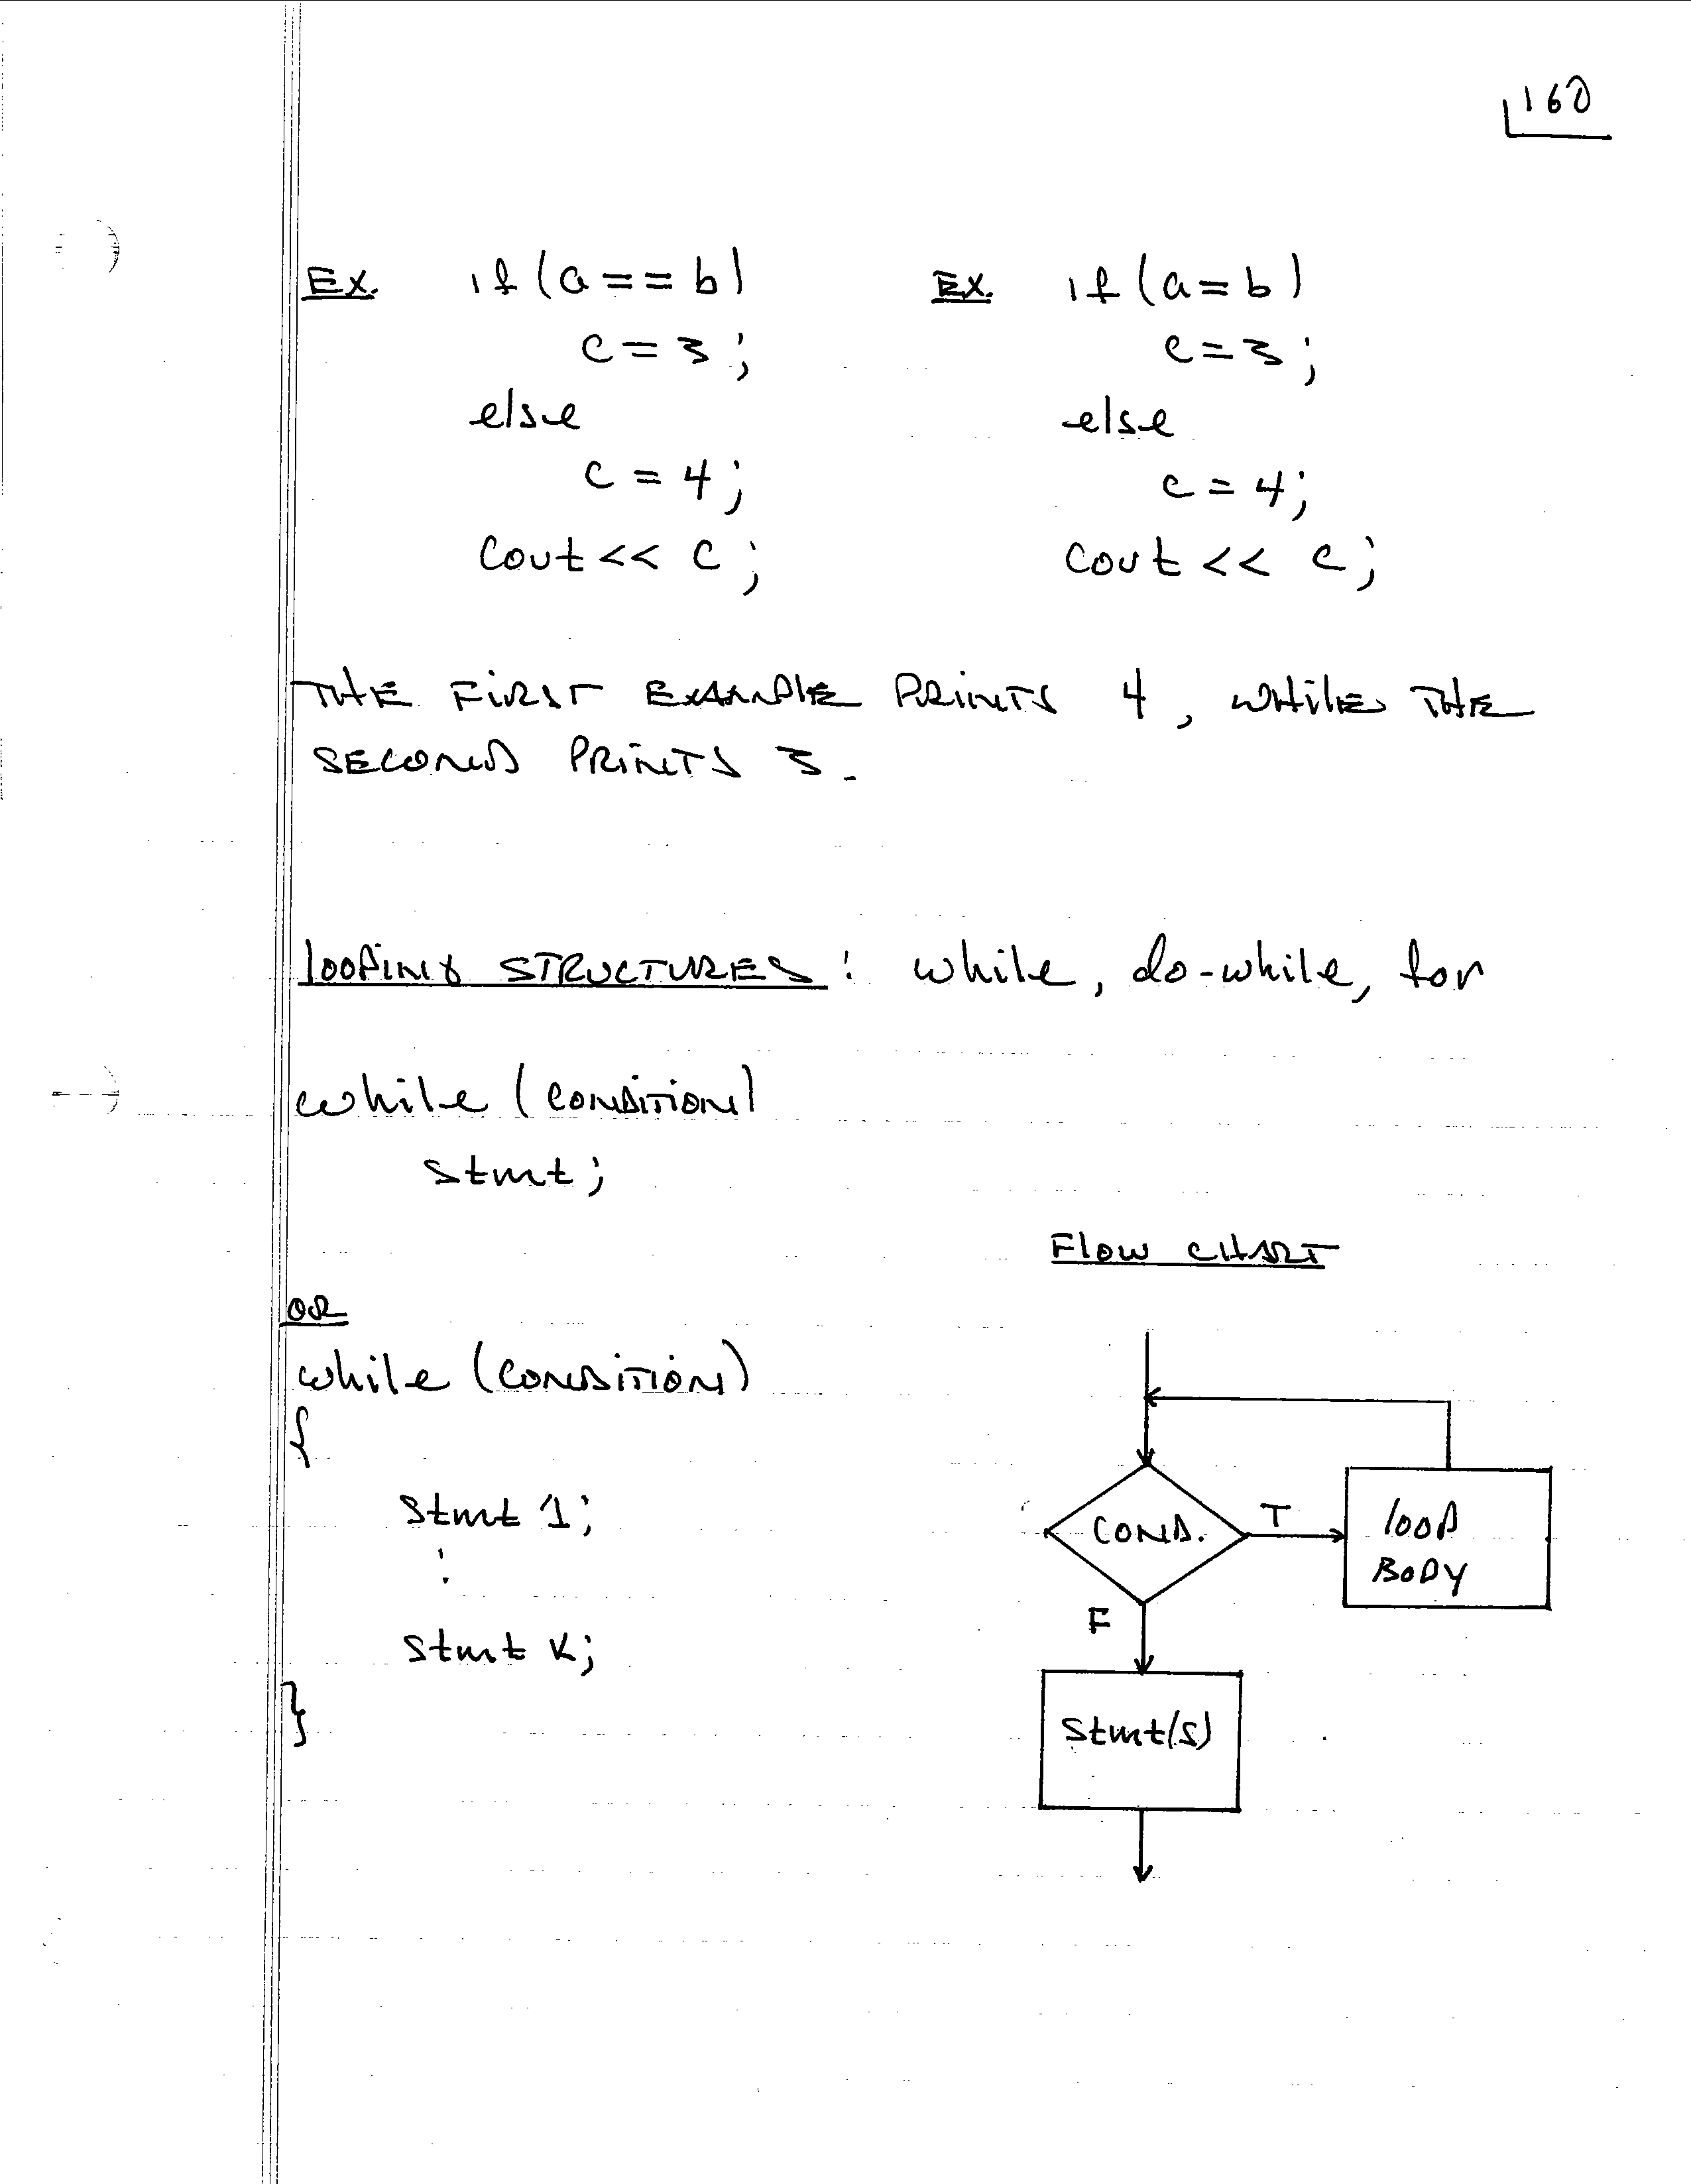 160
Ex. if (a == b)
c = 3;
else
c = 4;
cout << c;
Ex. if (a = b)
c = 3;
else
c = 4;
cout << c;
THE FIRST EXAMPLE PRINTS 4, WHILE THE
SECOND PRINTS 3.
LOOPING STRUCTURES: while, do-while, for
while (CONDITION)
stmt;
OR
while (CONDITION)
{
stmt 1;
:
stmt K;
}
FLOW CHART
COND.
T
LOOP
BODY
F
stmt(s)